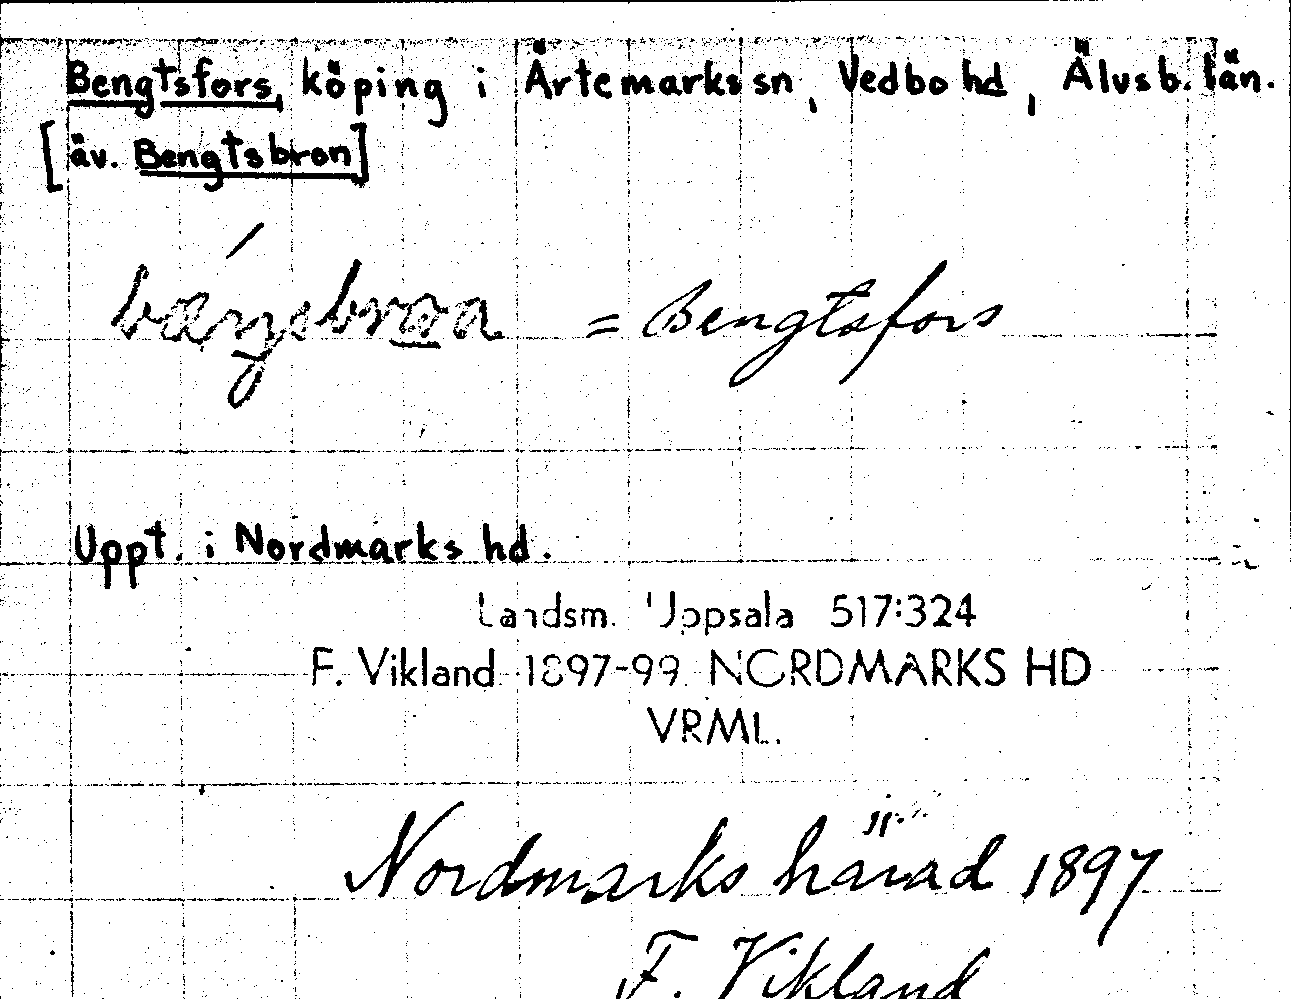 Bengtsfors, köping i Ärtemarks sn, Vedbo hd, Älvsb. län.
[äv. Bengtsbron]
= Bengtsfors
Uppt. i Nordmarks hd.
Landsm. Uppsala 517:324
F. Vikland 1897-99 NORDMARKS HD
VRML.
Nordmarks härad 1897
F. Vikland